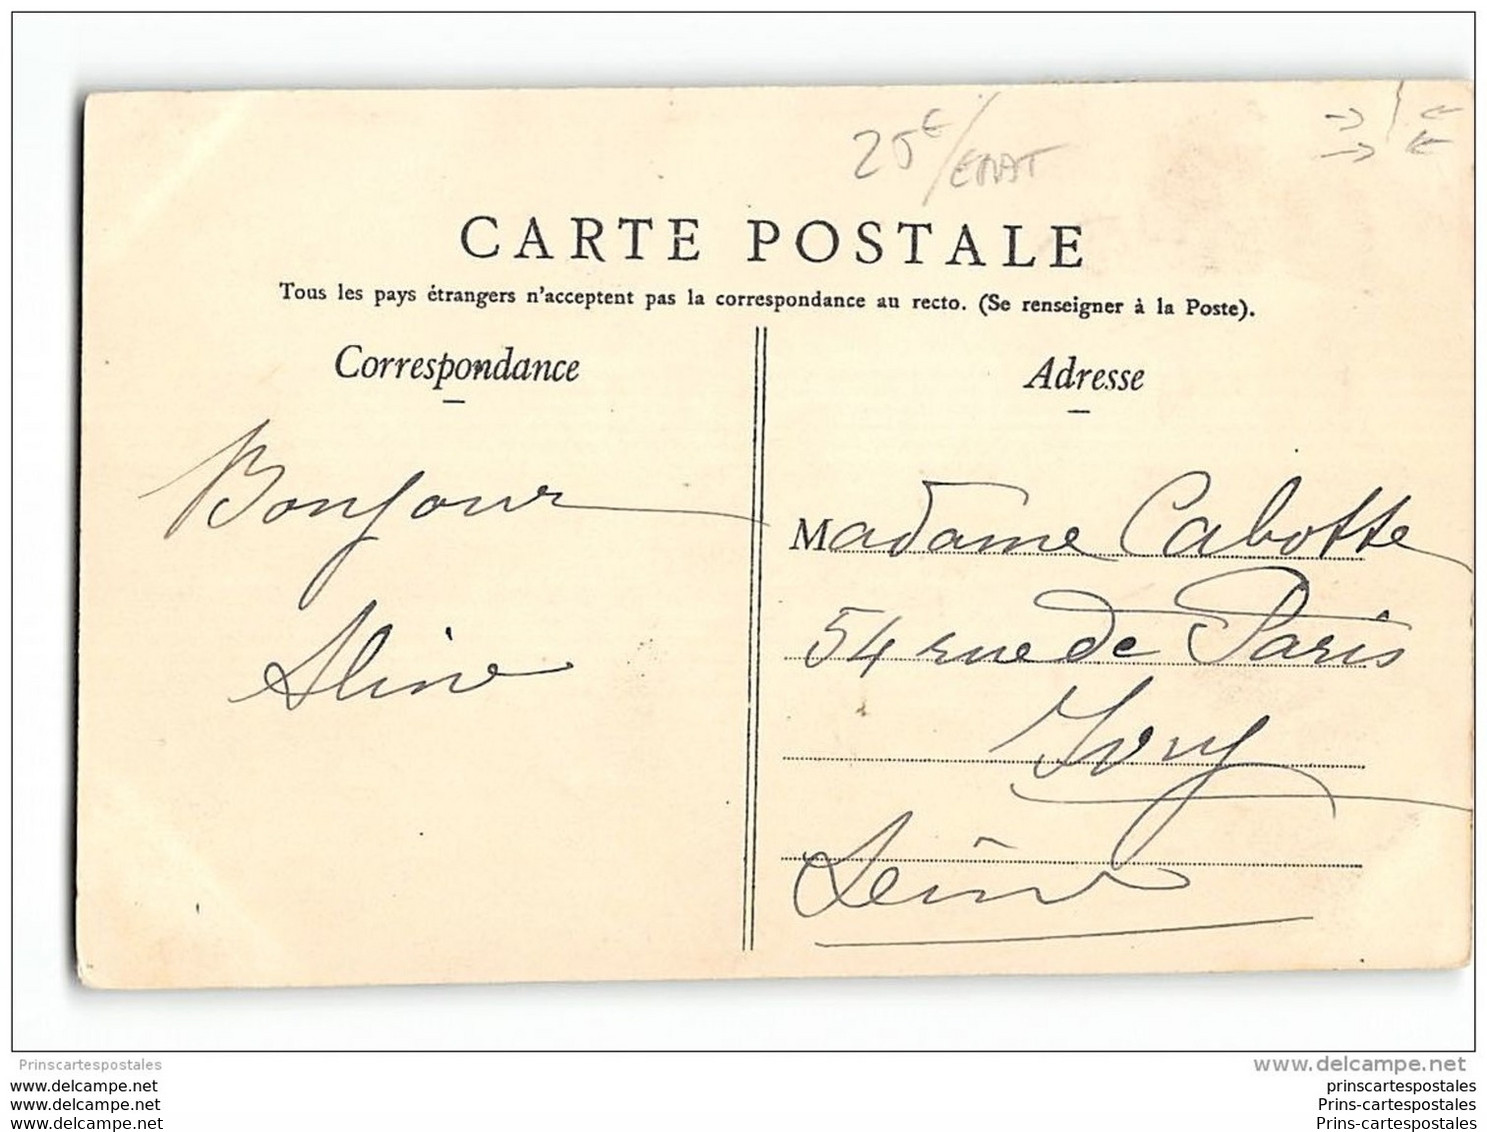 25€/ETAT
CARTE POSTALE
Tous les pays étrangers n'acceptent pas la correspondance au recto. (Se renseigner à la Poste).
Correspondance
Bonjour
Aline
Adresse
Madame Cabotte
54 rue de Paris
Ivry
Seine
Prinscartespostales
www.delcampe.net
www.delcampe.net
www.delcampe.net
www.delcampe.net
prinscartespostales
Prins-cartespostales
Prins-cartespostales